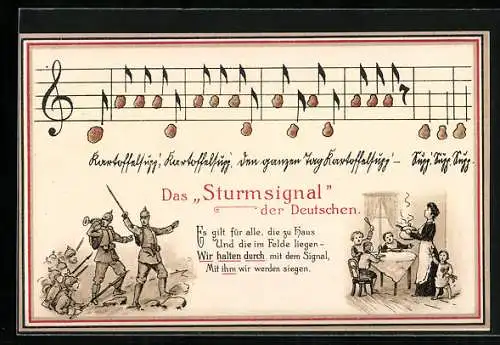 Kartoffelsupp', Kartoffelsupp', den ganzen Tag Kartoffelsupp' – Supp', Supp', Supp.
Das „Sturmsignal"
der Deutschen.
Es gilt für alle, die zu Haus
Und die im Felde liegen –
Wir halten durch mit dem Signal,
Mit ihm wir werden siegen.